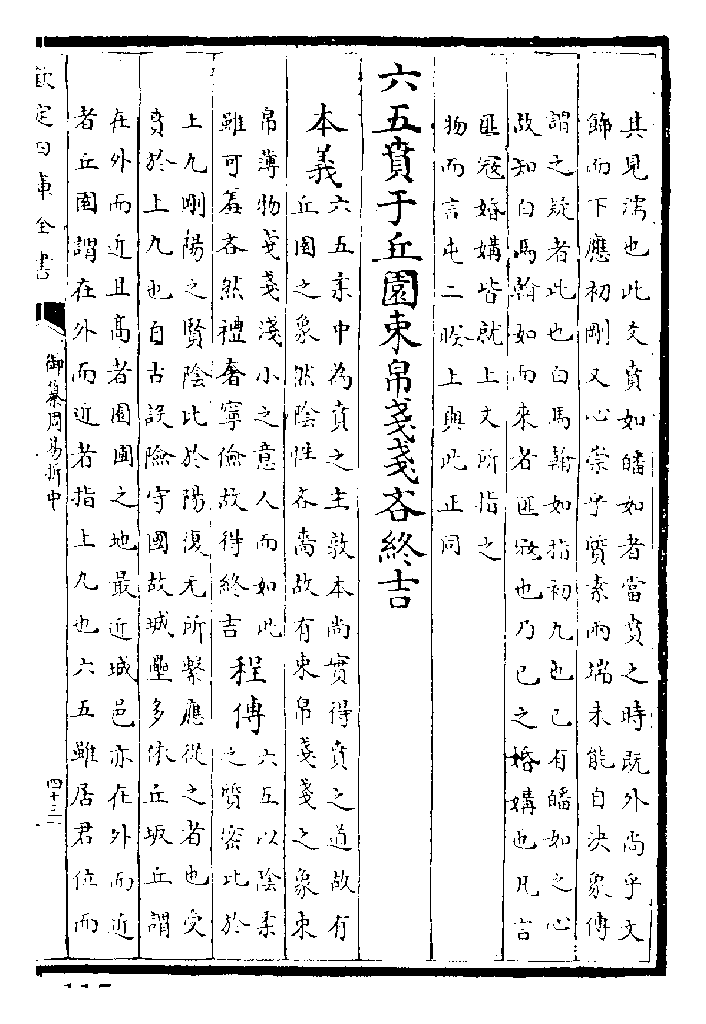 其見濡也此文賁如皤如者當賁之時既外尚乎文
飾而下應初剛又心崇乎質素兩端未能自決象傳
謂之疑者此也白馬翰如指初九也己有皤如之心
故知白馬翰如而來者匪寇也乃己之婚媾也凡言
匪寇婚媾皆就上文所指之
物而言屯二睽上與此正同
六五賁于丘園束帛戔戔吝終吉
本義
六五柔中為賁之主敦本尚實得賁之道故有
丘園之象然陰性吝嗇故有束帛戔戔之象束
帛薄物戔戔淺小之意人而如此
雖可羞吝然禮奢寧儉故得終吉
程傳
六五以陰柔
之質密比於
上九剛陽之賢陰比於陽復无所繫應從之者也受
賁於上九也自古設險守國故城壘多依丘坂丘謂
在外而近且高者園圃之地最近城邑亦在外而近
者丘園謂在外而近者指上九也六五雖居君位而
欽定四庫全書
御纂周易折中